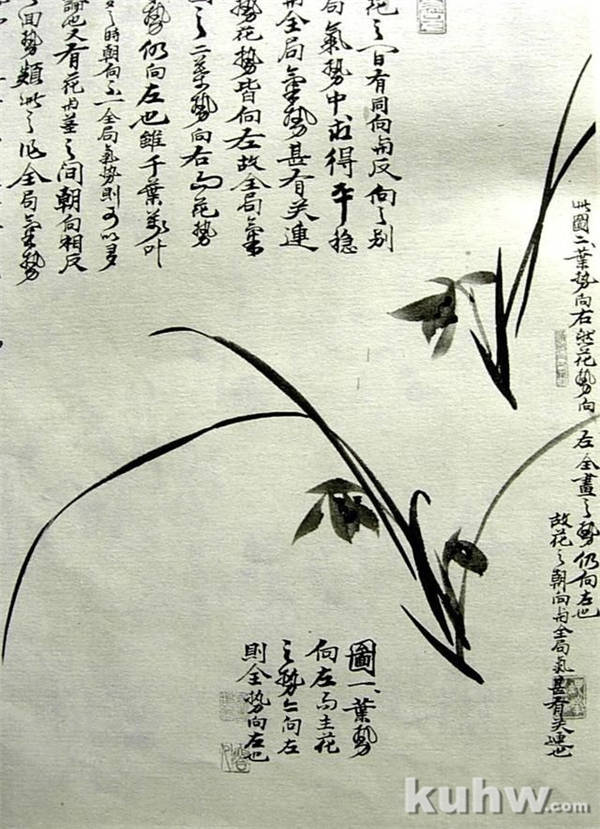 此圖二、葉勢向右然花勢向左全畫之勢仍向左也
故花之朝向與全局氣甚有关連也
花之一日有同向與反向之别
局氣勢中求得平穩
全局氣勢甚有关連
勢花勢皆向左故全局氣
之二葉勢向右而花勢
勢仍向左也雖千葉萬叶
之時朝向不一全局气勢則可以多
也又有花與莖之间朝向相反
间勢 全局气勢
圖一、葉勢
向左而主花
之勢亦向左
則全勢向左也
kuhw.com